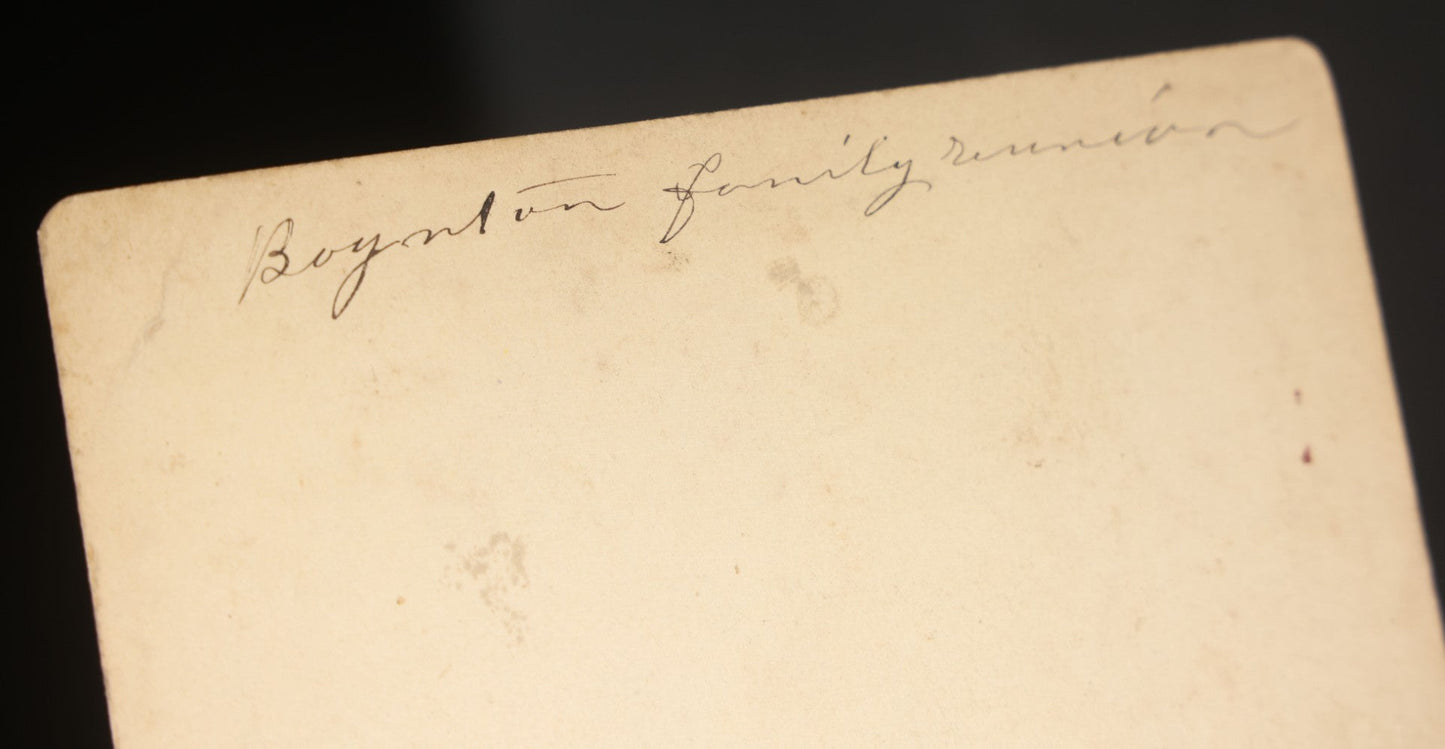 Boynton family reunion